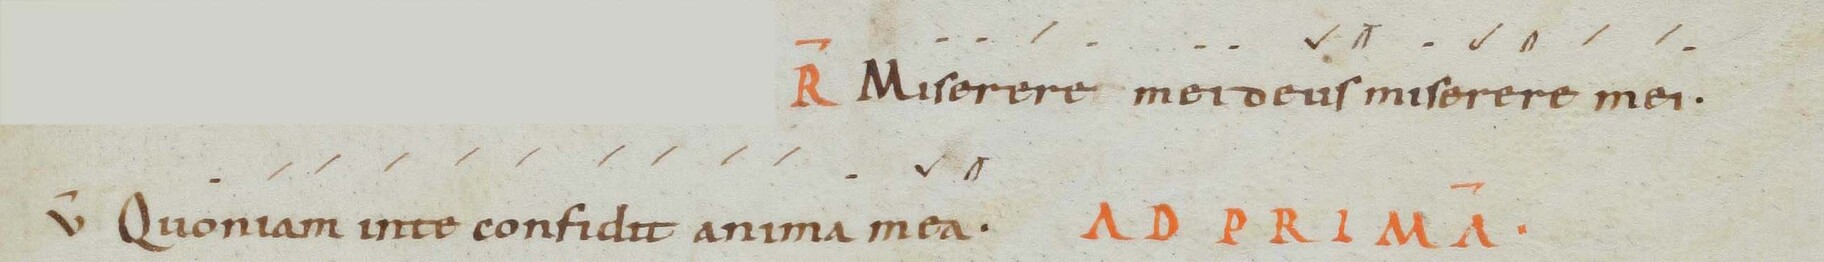 R̄ Miserere mei deus miserere mei.
v̄ Quoniam inte confidit anima mea. AD PRIMĀ.